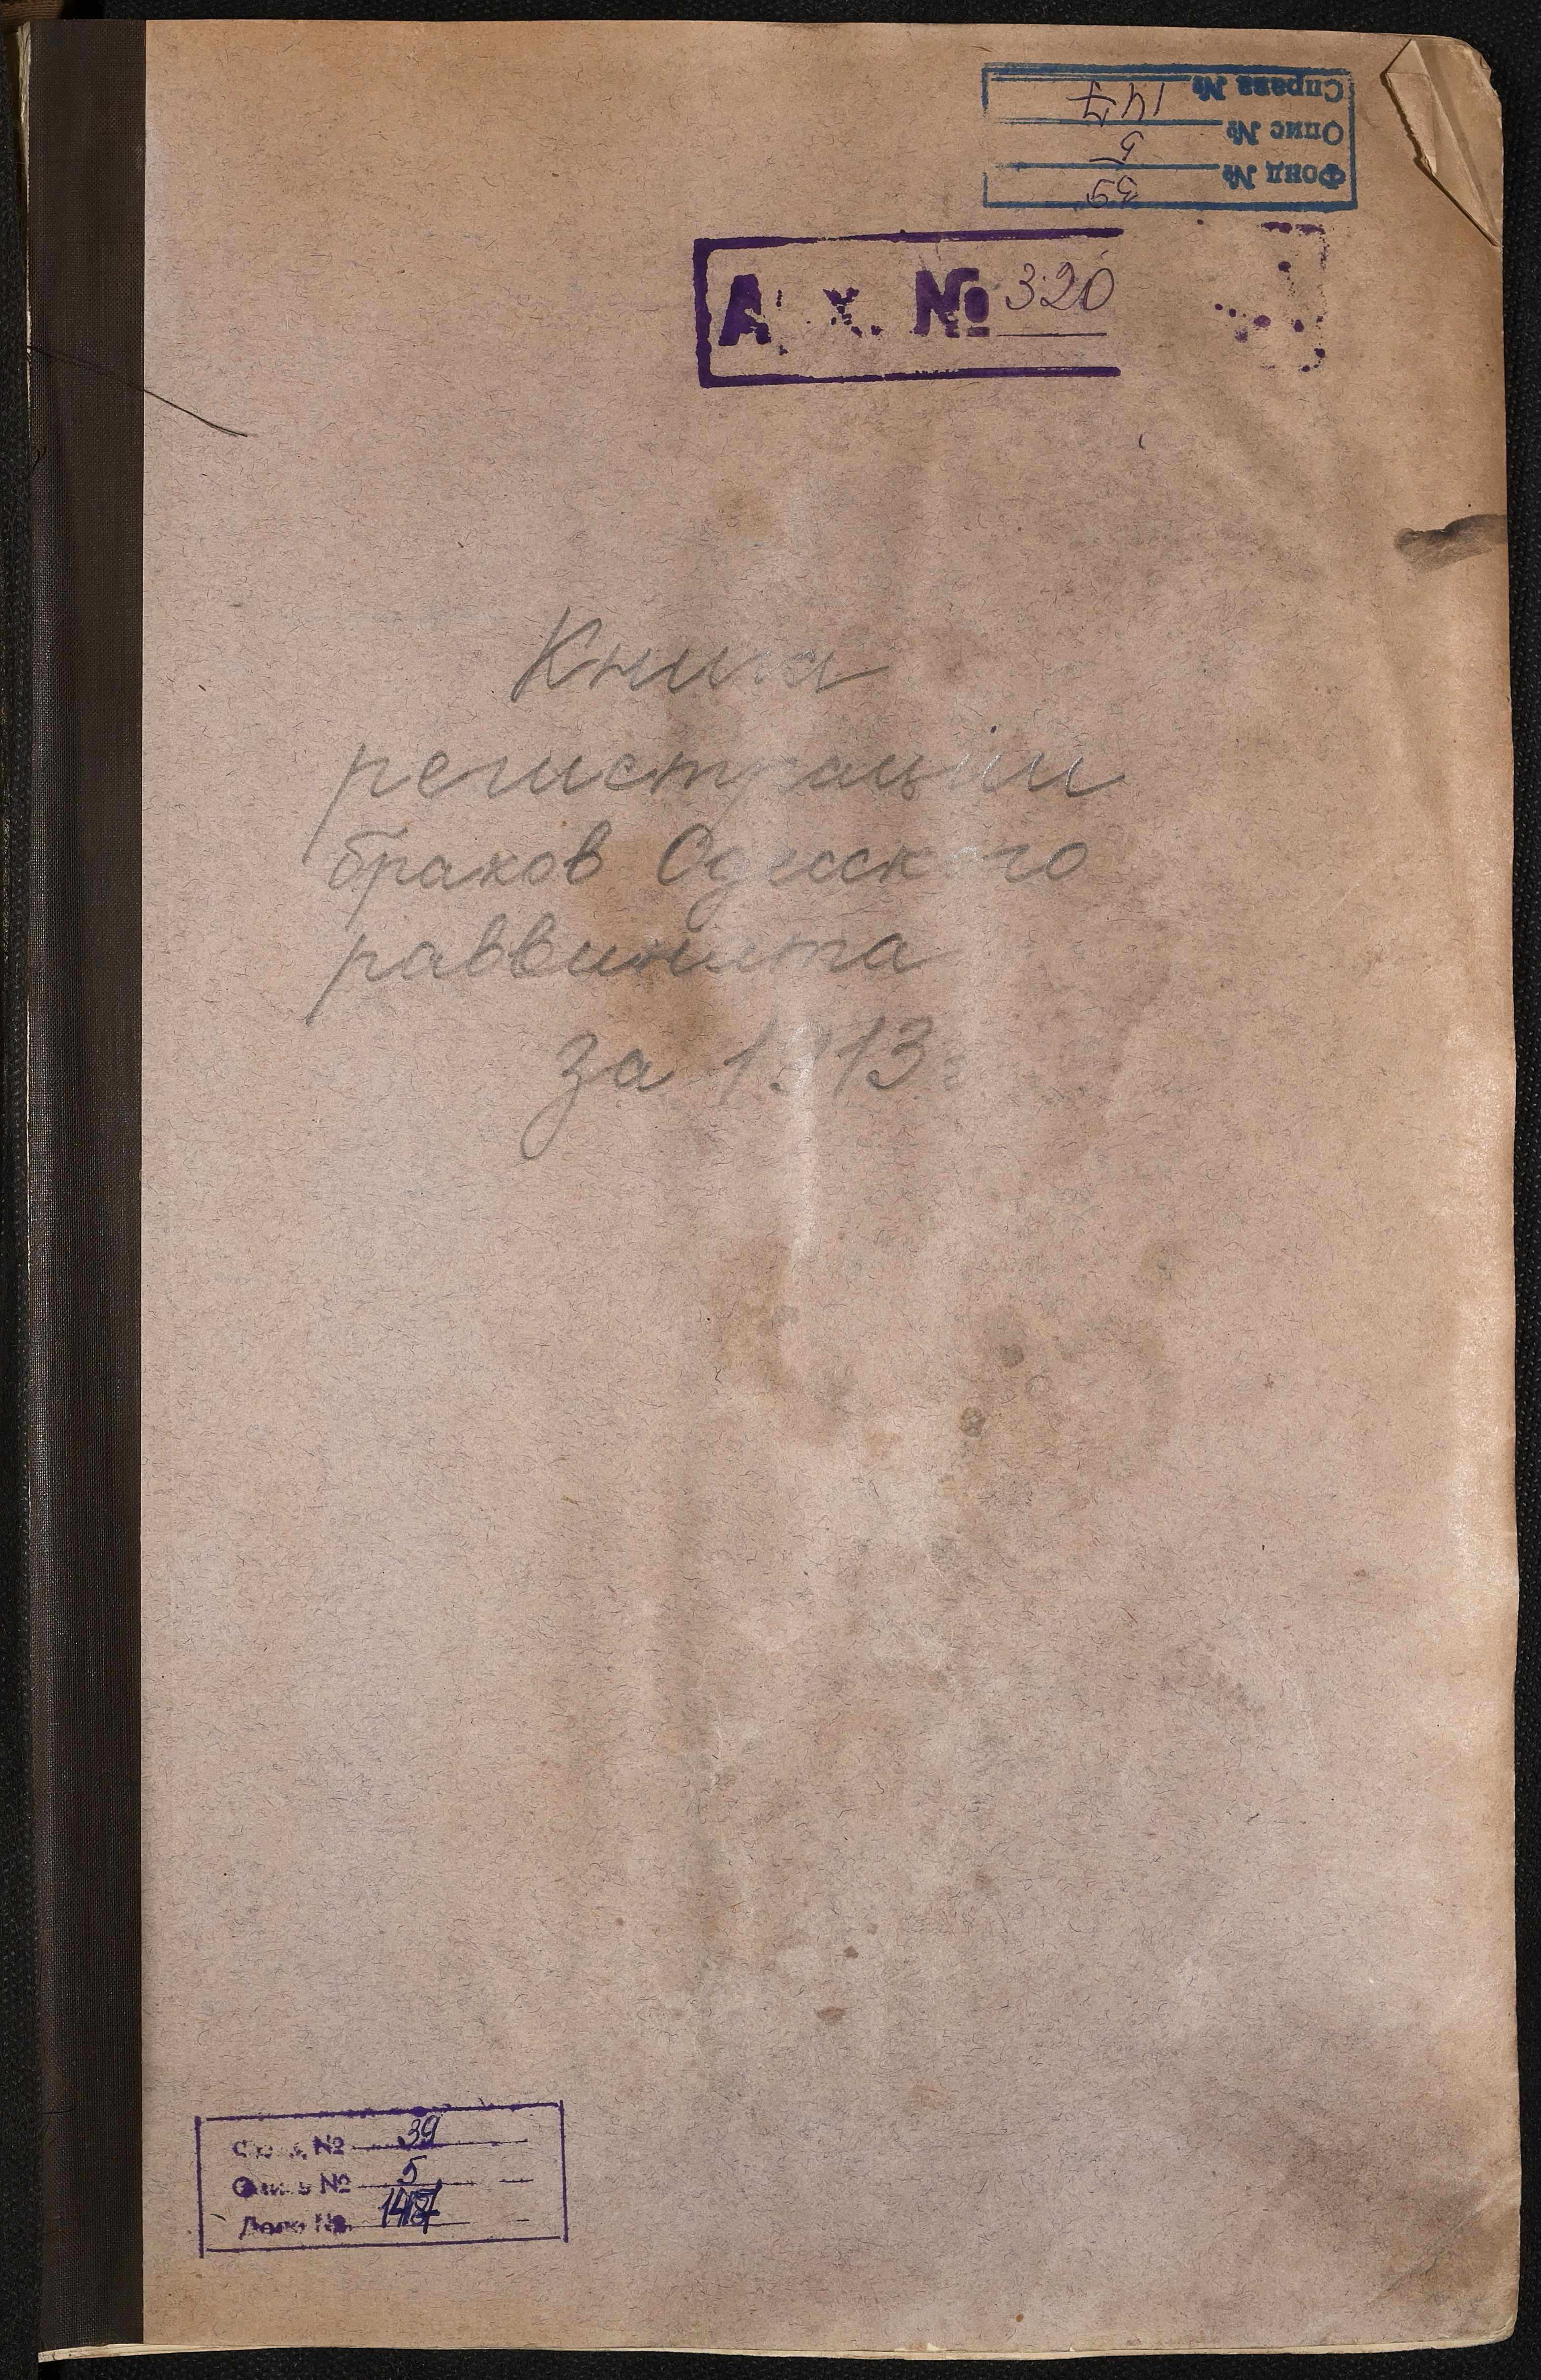 Справа № 147
Опис № 5
Фонд № 39
№ 320
Книга
регистрации
браков Одесского
раввината
за 1913г
№ 39
№ 5
Дело №